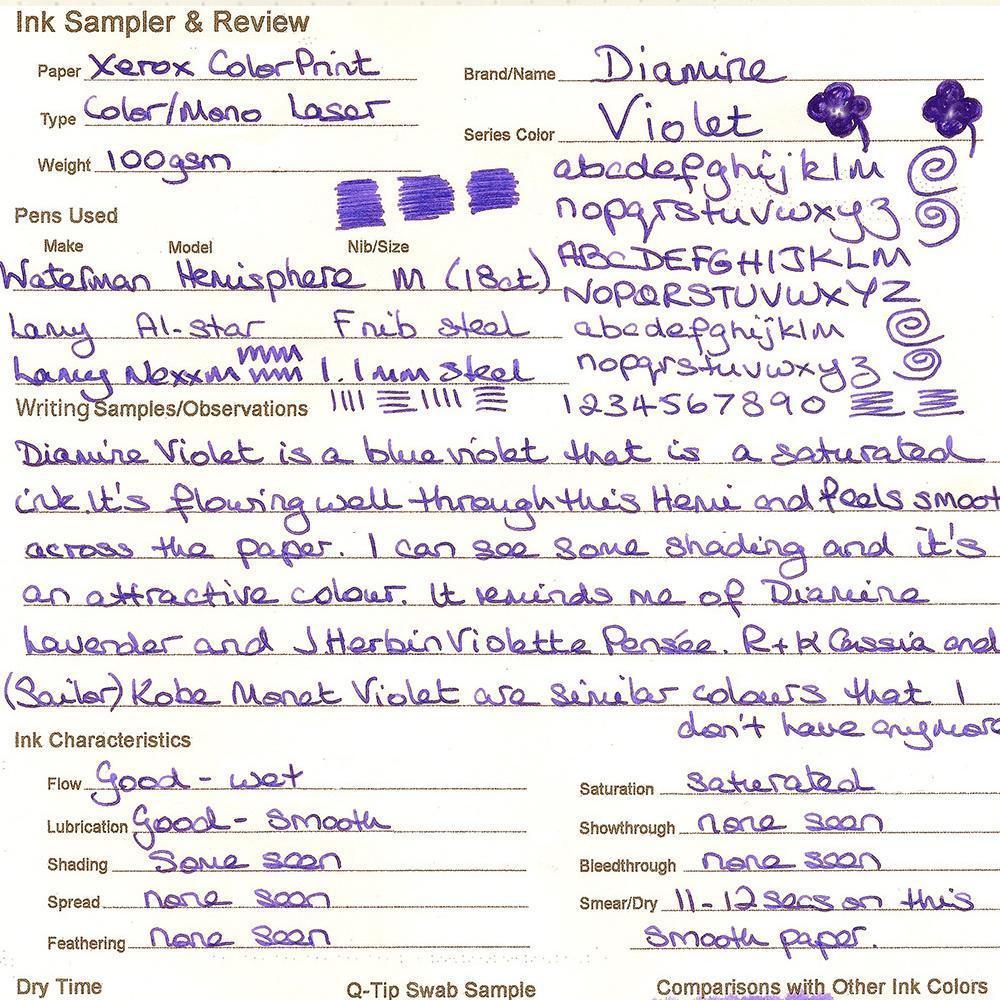 Ink Sampler & Review
Paper Xerox ColorPrint
Brand/Name Diamine
Type Color/Mono Laser
Series Color Violet
Weight 100gsm
abcdefghijklm
Pens Used
nopqrstuvwxyz
Make Model Nib/Size
ABCDEFGHIJKLM
Waterman Hemisphere M (18ct)
NOPQRSTUVWXYZ
Lamy Al-star F nib steel
abcdefghijklm
Lamy Nexx M 1.1mm steel
nopqrstuvwxyz
Writing Samples/Observations
1234567890
Diamine Violet is a blue violet that is a saturated
ink. It's flowing well through this Hemi and feels smoot
across the paper. I can see some shading and it's
an attractive colour. It reminds me of Diamine
Lavender and J Herbin Violette Pensée. R+K Cassia and
(Sailor) Kobe Monet Violet are similar colours that I
don't have anymore
Ink Characteristics
Flow Good - wet
Saturation saturated
Lubrication Good - smooth
Showthrough none seen
Shading Some seen
Bleedthrough none seen
Spread none seen
Smear/Dry 11-12 secs on this
Feathering none seen
smooth paper.
Dry Time
Q-Tip Swab Sample
Comparisons with Other Ink Colors